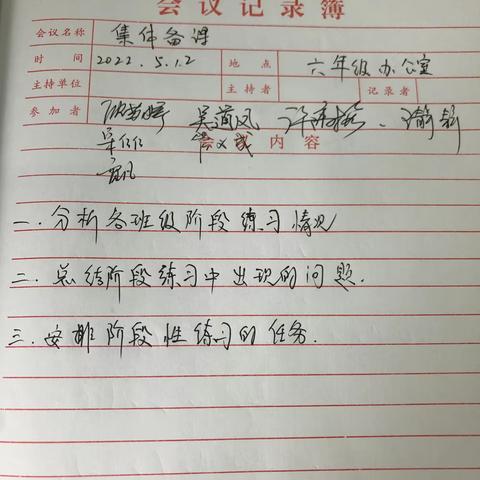 会议记录簿
会议名称 集体备课
时间 2022.5.12 地点 六年级办公室
主持单位 主持者 记录者
参加者 吴道风
会议内容
一.分析各班级阶段练习情况
二.总结阶段练习中出现的问题.
三.安排阶段性练习的任务.